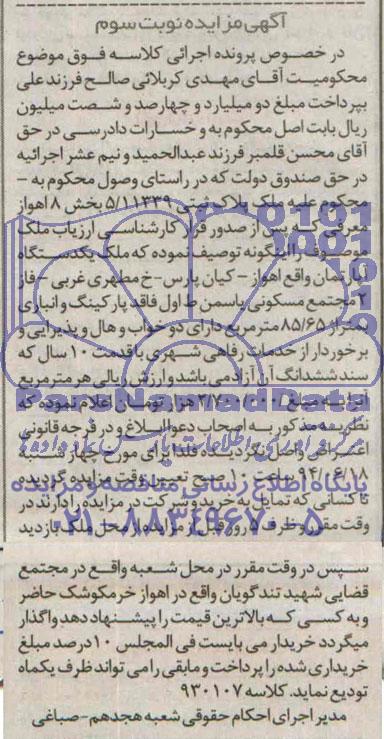 آگهی مزایده نوبت سوم
در خصوص پرونده اجرائی کلاسه فوق موضوع
محکومیت آقای مهدی کربلائی صالح فرزند علی
بپرداخت مبلغ دو میلیارد و چهارصد و شصت میلیون
ریال بابت اصل محکوم به و خسارات دادرسی در حق
آقای محسن قلمبر فرزند عبدالحمید و نیم عشر اجرائیه
در حق صندوق دولت که در راستای وصول محکوم به -
محکوم علیه ملک پلاک ثبتی ۵/۱۱۳۳۹ بخش ۸ اهواز
معرفی که پس از صدور قرار کارشناسی ارزیاب ملک
موصوف را اینگونه توصیف نموده که ملک یکدستگاه
آپارتمان واقع اهواز - کیان پارس - خ مطهری غربی - فاز
۲ مجتمع مسکونی یاسمن ط اول فاقد پارکینگ و انباری
بمتراژ ۸۵/۶۵ مترمربع دارای دو خواب و هال و پذیرایی و
برخوردار از خدمات رفاهی شهری با قدمت ۱۰ سال که
سند ششدانگ آن آزاد می باشد و ارزش ریالی هر مترمربع
آنرا به مبلغ ۳/۷۰۰/۰۰۰ هزار تومان اعلام نموده که
نظریه مذکور به اصحاب دعوا ابلاغ و در فرجه قانونی
اعتراضی واصل نگردیده فلذا برای مورخ چهارشنبه
۹۴/۰۶/۱۸ ساعت ۱۰ صبح تعیین وقت مزایده گردیده
تا کسانی که تمایل به خرید و شرکت در مزایده را دارند در
وقت مقرر و ظرف ۵ روز قبل از مزایده از محل ملک بازدید
سپس در وقت مقرر در محل شعبه واقع در مجتمع
قضایی شهید تندگویان واقع در اهواز خرمکوشک حاضر
و به کسی که بالاترین قیمت را پیشنهاد دهد واگذار
میگردد خریدار می بایست فی المجلس ۱۰ درصد مبلغ
خریداری شده را پرداخت و مابقی را می تواند ظرف یکماه
تودیع نماید. کلاسه ۹۳۰۱۰۷
مدیر اجرای احکام حقوقی شعبه هجدهم - صباغی
پایگاه اطلاع رسانی مناقصه و مزایده
۰۲۱-۸۸۳۴۹۶۷۰-۵